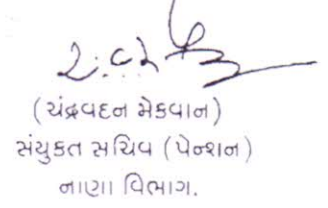 (ચંદ્રવદન મેકવાન)
સંયુકત સચિવ (પેન્શન)
નાણા વિભાગ.